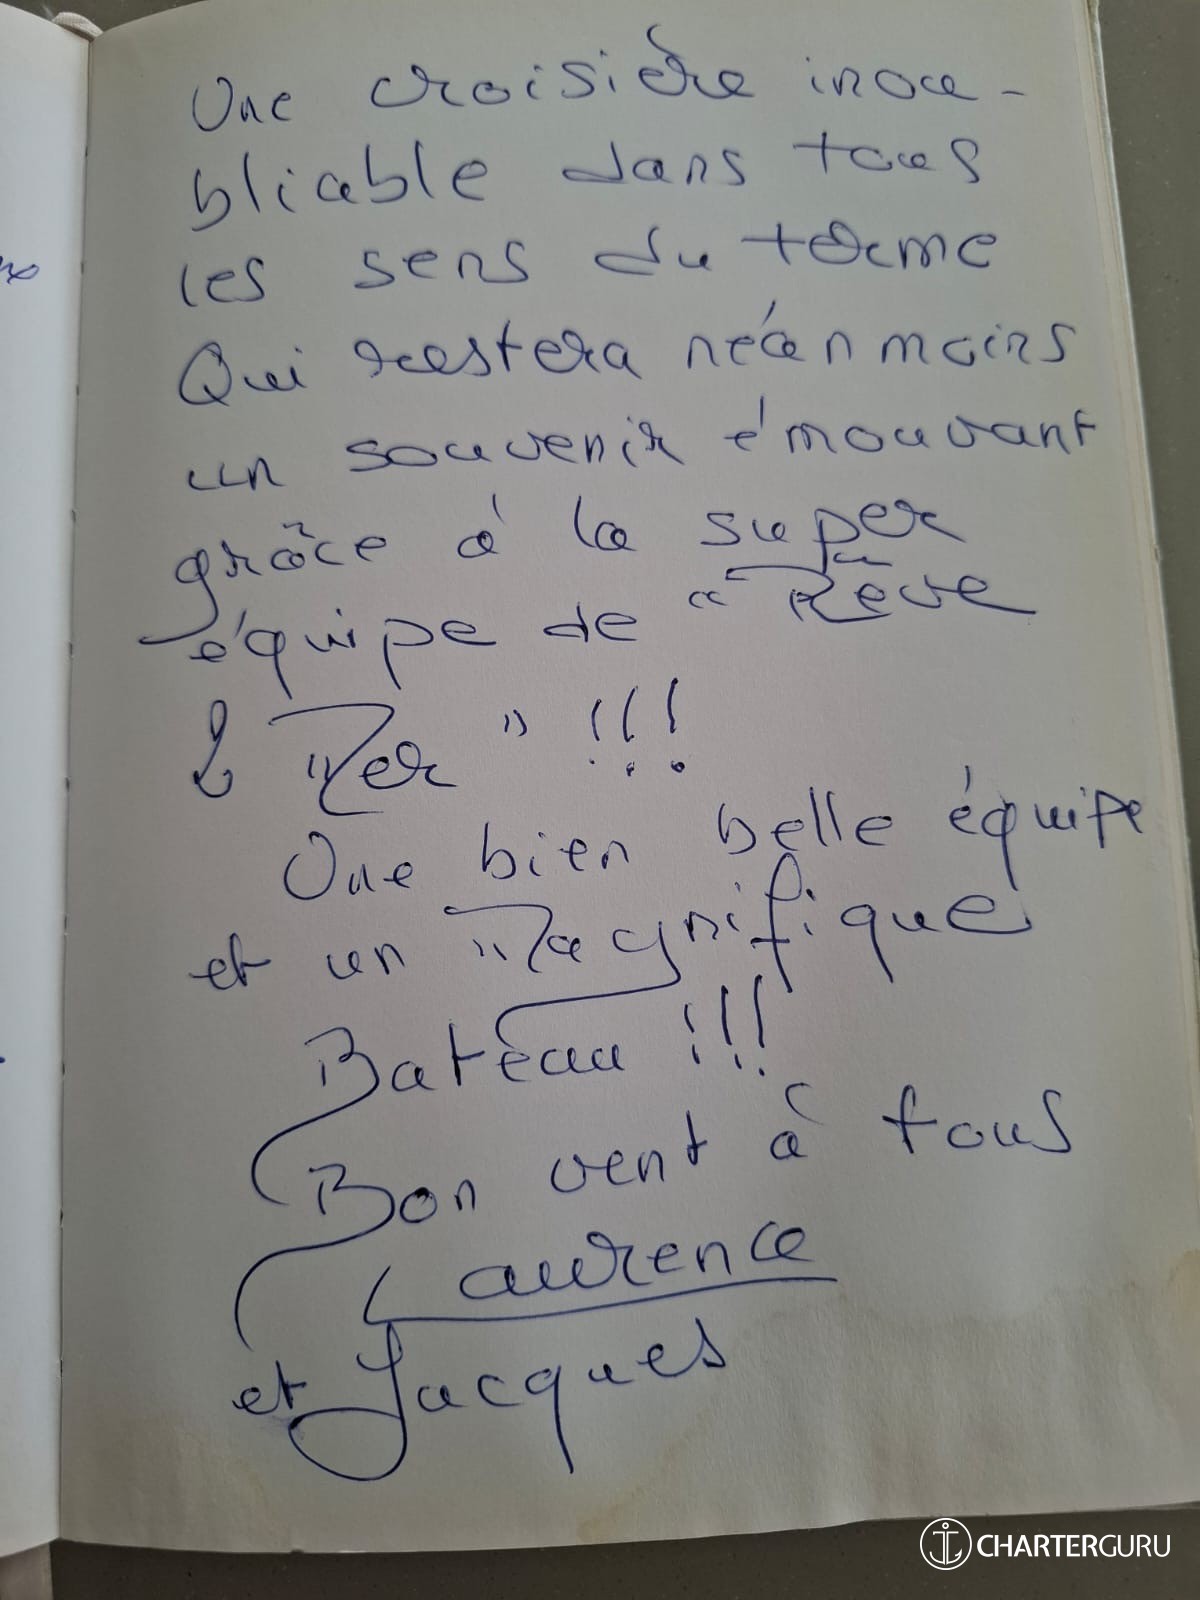 Une croisière inou-
bliable dans tous
les sens du terme
Qui restera néanmoins
un souvenir émouvant
grâce à la super
équipe de " Rêve
2 Mer " !!!
Une bien belle équipe
et un Magnifique
Bateau !!!
Bon vent à tous
Laurence
et Jacques
CHARTERGURU